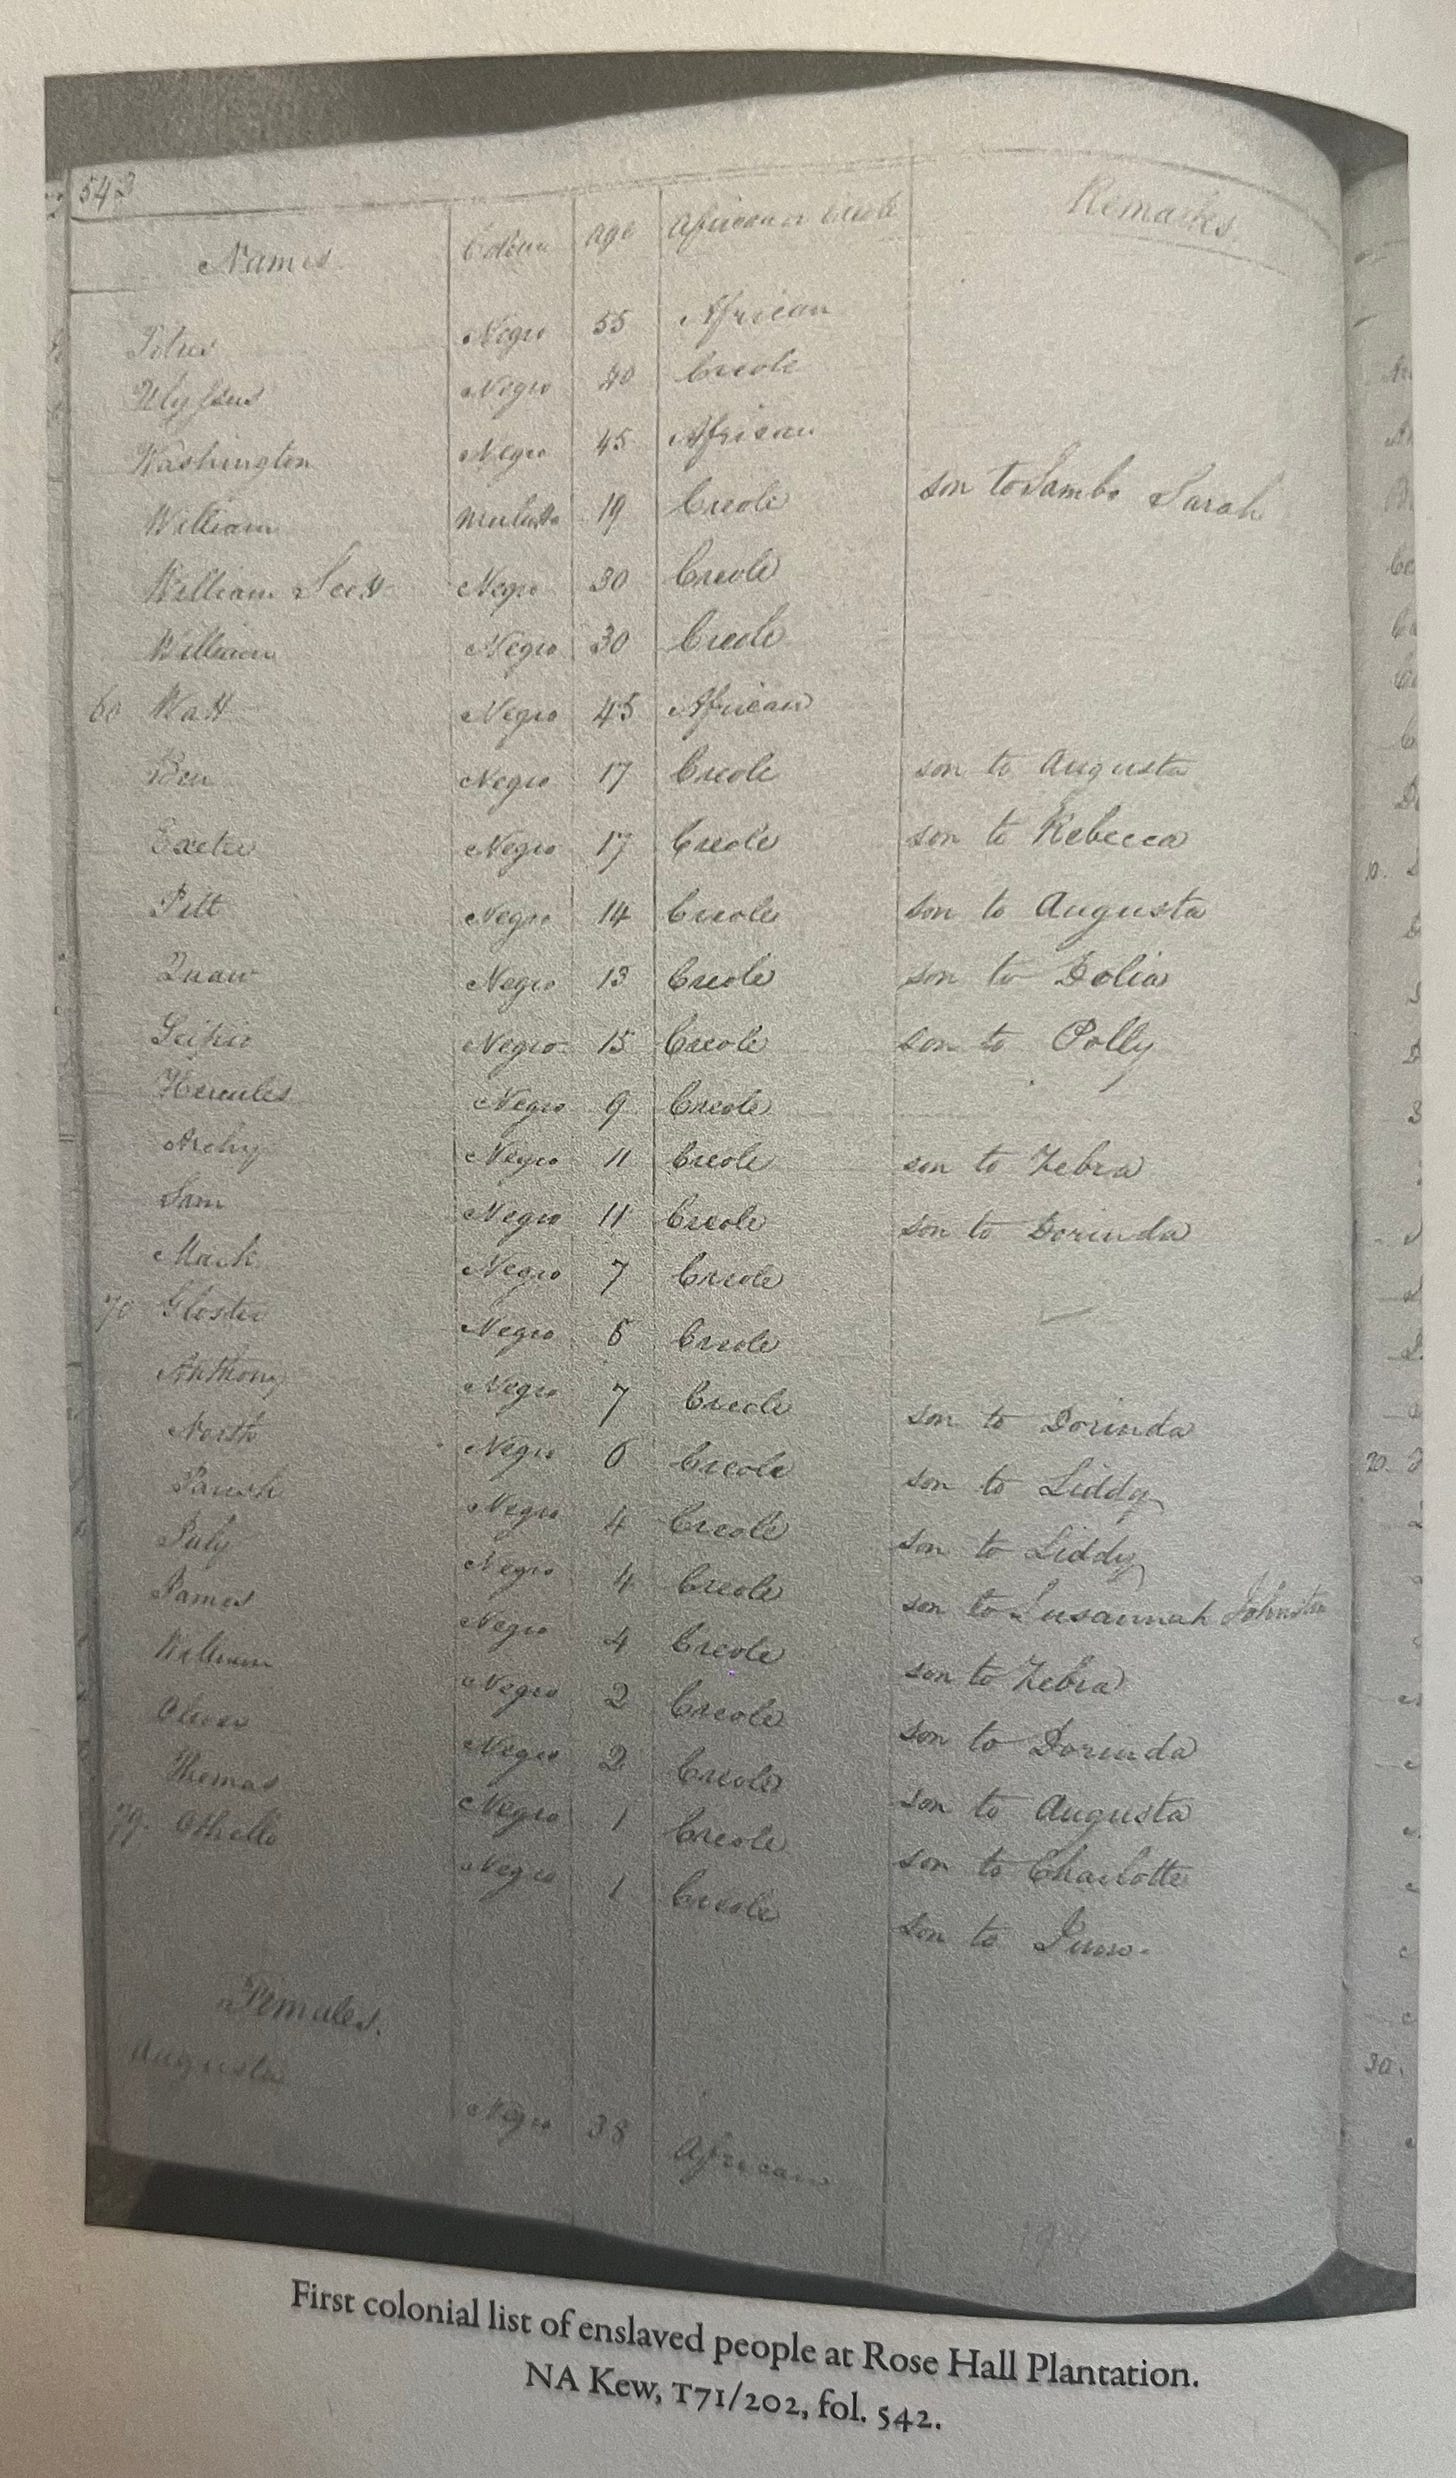 542
Names Colour Age African or Creole Remarks
Negro 55 African
Ulysses Negro 40 Creole
Washington Negro 45 African
William Mulatto 19 Creole son to Sambo Sarah
William Scott Negro 30 Creole
William Negro 30 Creole
60 Watt Negro 45 African
Ben Negro 17 Creole son to Augusta
Exeter Negro 17 Creole son to Rebecca
Pitt Negro 14 Creole son to Augusta
Quaw Negro 13 Creole son to Dolia
Scipio Negro 15 Creole son to Polly
Hercules Negro 9 Creole
Archy Negro 11 Creole son to Zebra
Sam Negro 11 Creole son to Dorinda
Mack Negro 7 Creole
70 Gloster Negro Creole
Anthony Negro 7 Creole son to Dorinda
North Negro 6 Creole son to Liddy
Parish Negro 4 Creole son to Liddy
July Negro 4 Creole son to Susannah Johnston
James Negro 4 Creole son to Zebra
William Negro 2 Creole son to Dorinda
Oliver Negro 2 Creole son to Augusta
Thomas Negro 1 Creole son to Charlotte
79. Othello Negro 1 Creole son to Juno.
Females.
Augusta Negro 38 African
10.
20.
30.
First colonial list of enslaved people at Rose Hall Plantation.
NA Kew, T71/202, fol. 542.